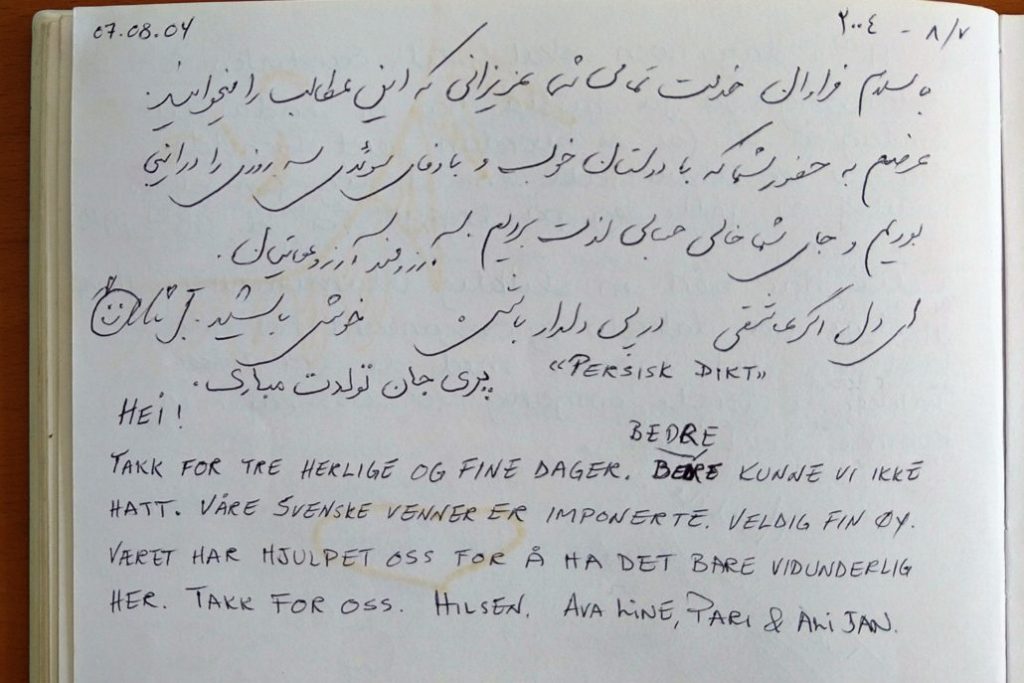 07.08.04
۲۰۰٤ - ۸/۷
با سلام فراوان خدمت تمامی شما عزیزانی که این مطالب را میخوانید
عرضم به حضور شما که با دوستان خوب و باوفای سوئدی سه روزی را در اینجا
بودیم و جای شما خالی حسابی لذت بردیم.
ای دل اگر عاشقی در پی دلدار باش خوش باشید.
«PERSISK DIKT»
پری جان تولدت مبارک.
HEI!
BEDRE
TAKK FOR TRE HERLIGE OG FINE DAGER. KUNNE VI IKKE
HATT. VÅRE SVENSKE VENNER ER IMPONERTE. VELDIG FIN ØY.
VÆRET HAR HJULPET OSS FOR Å HA DET BARE VIDUNDERLIG
HER. TAKK FOR OSS. HILSEN. AVA LINE, PARI & ALI JAN.